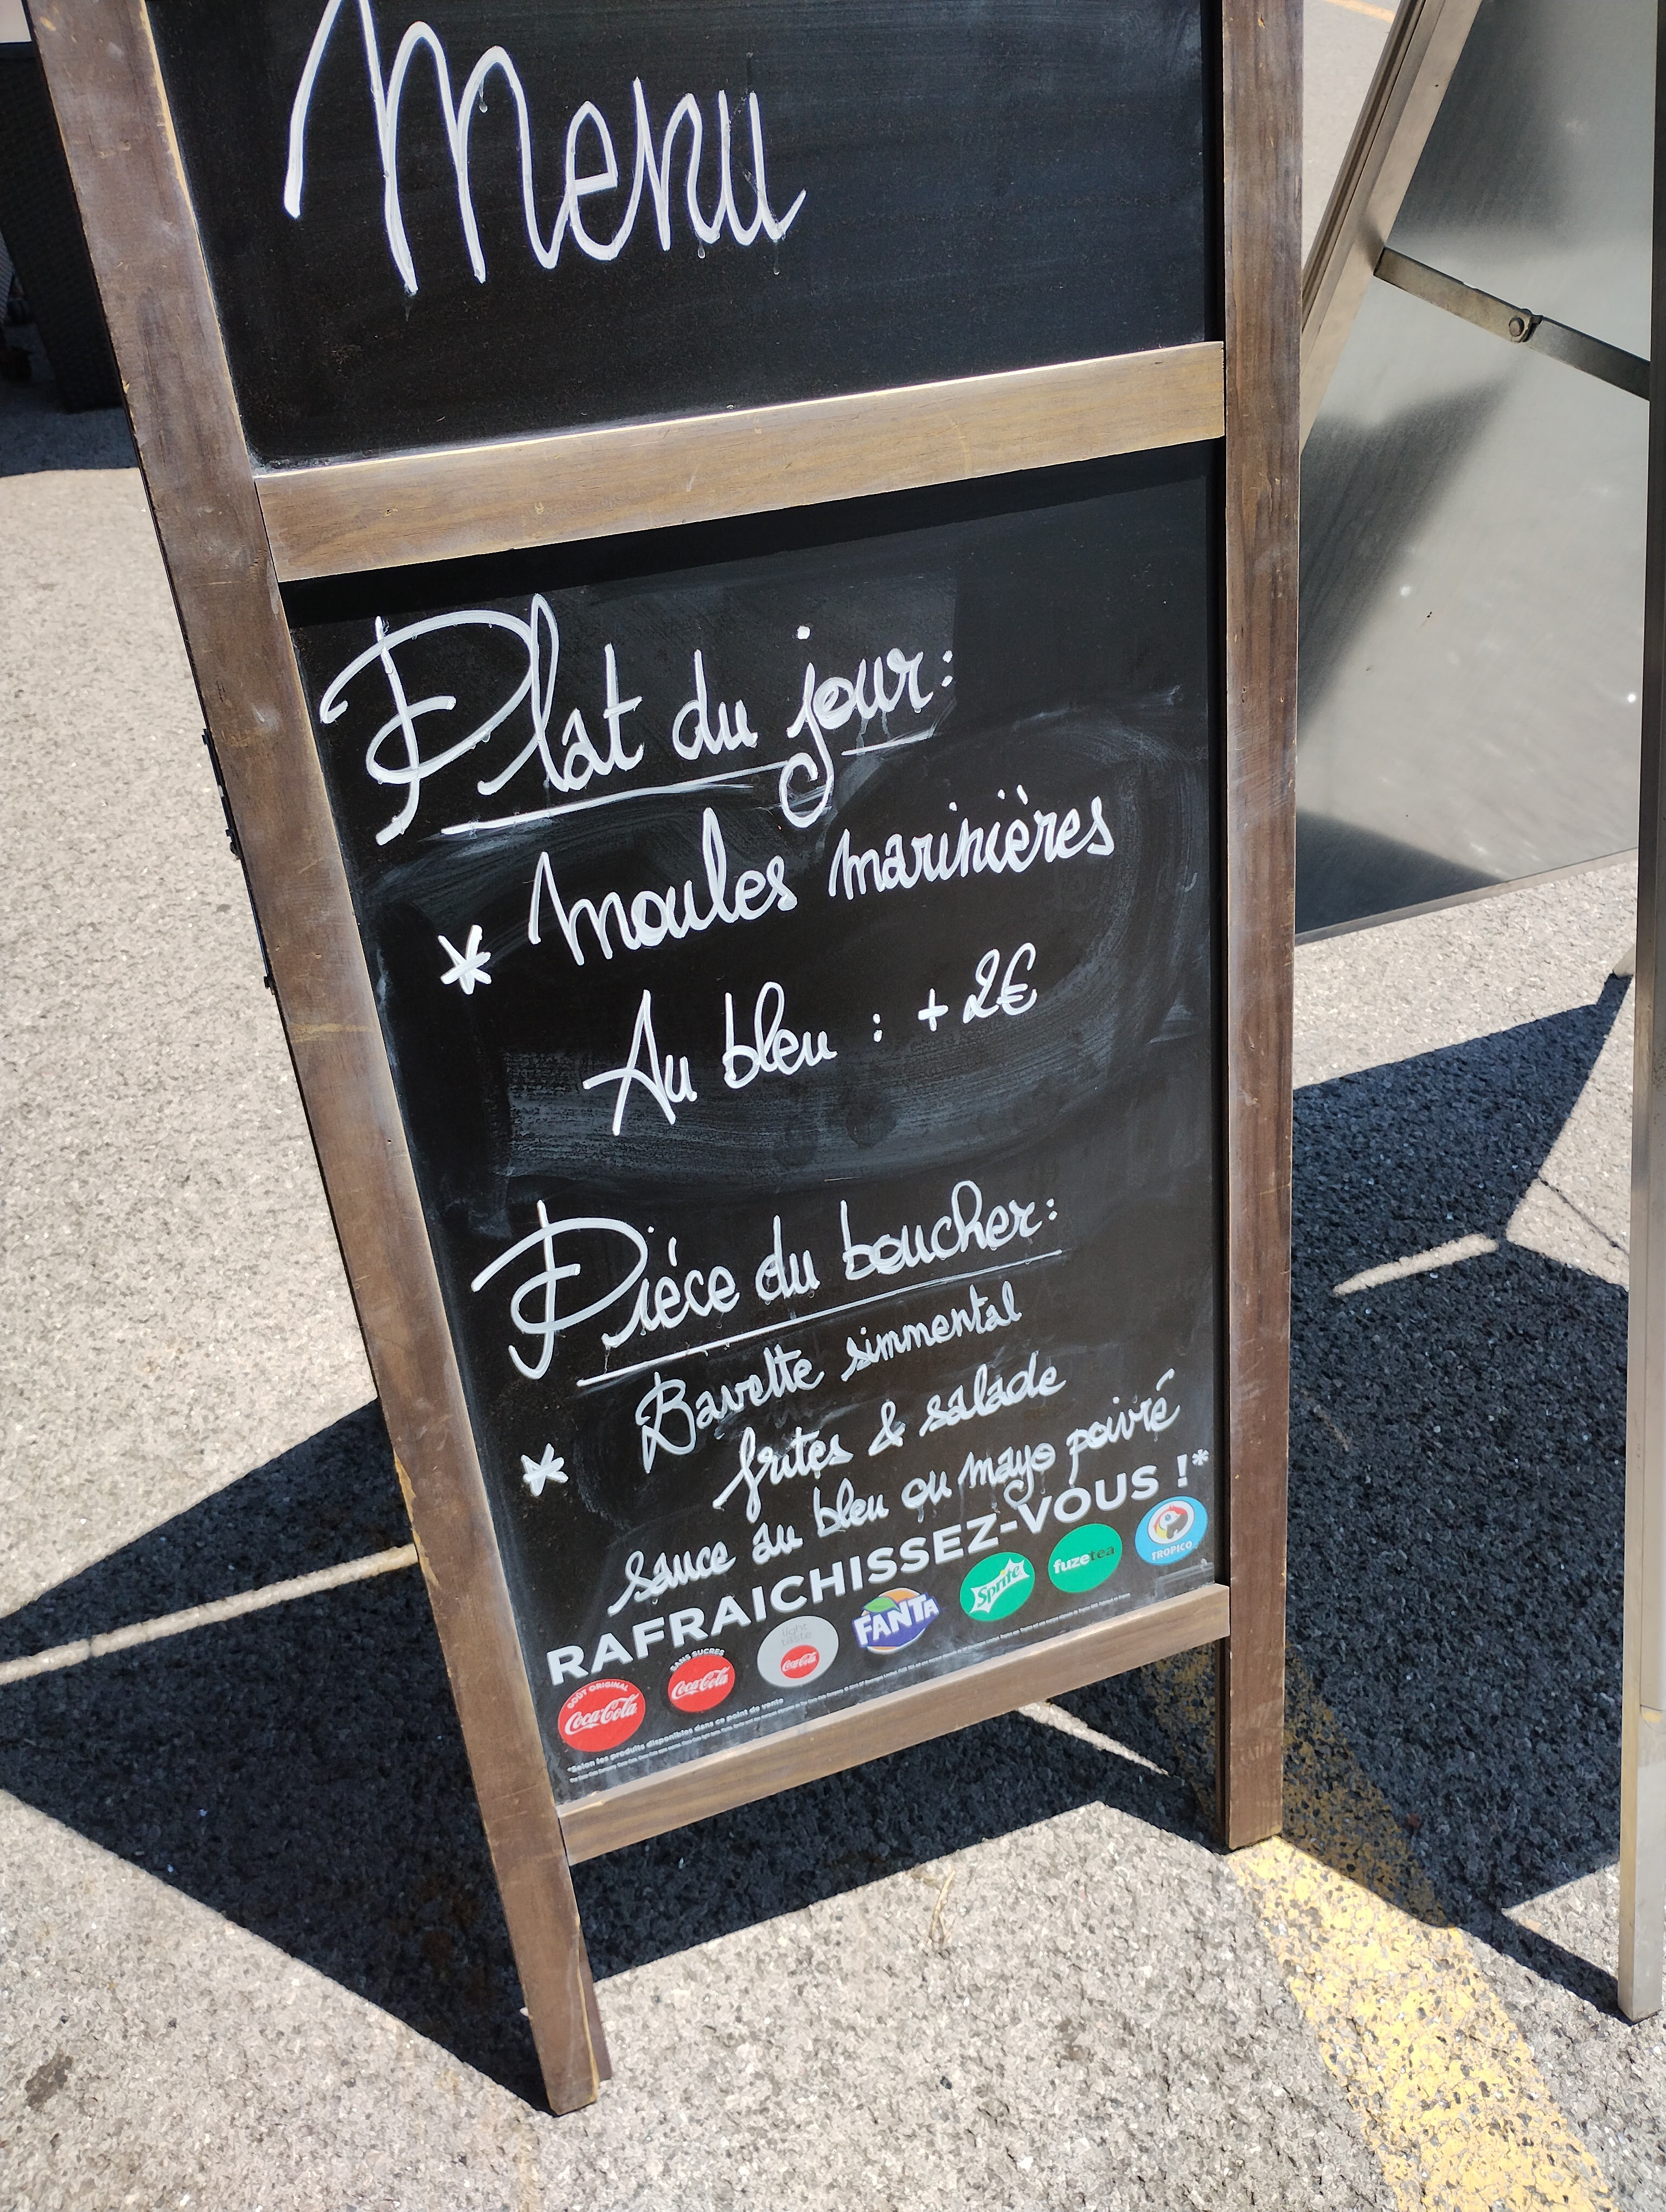 Menu
Plat du jour:
* Moules marinières
Au bleu : + 2€
Piéce du boucher:
Bavette simmental
* frites & salade
sauce au bleu ou mayo poivré
RAFRAICHISSEZ-VOUS !*
GOÛT ORIGINAL
Coca-Cola
SANS SUCRES
Coca-Cola
light
taste
Coca-Cola
FANTA
Sprite
fuzetea
TROPICO
*Selon les produits disponibles dans ce point de vente